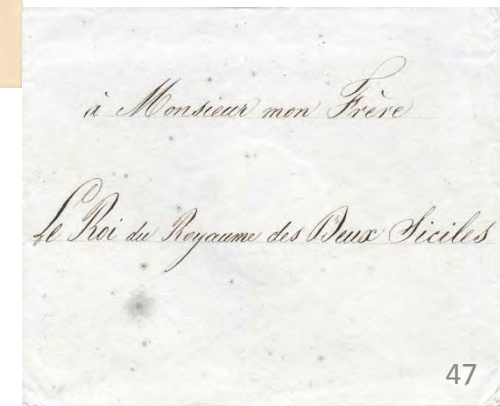 à Monsieur mon Frère
Le Roi du Royaume des Deux Siciles
47